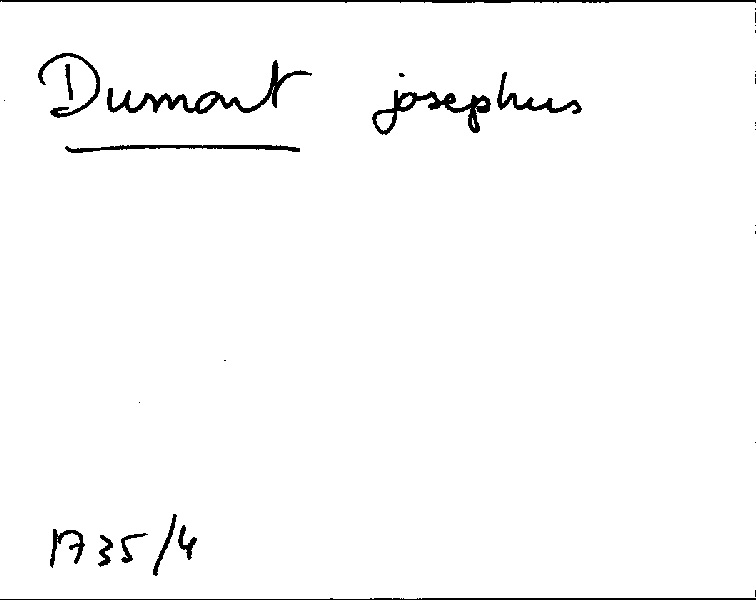 Dumont josephus
1735/4